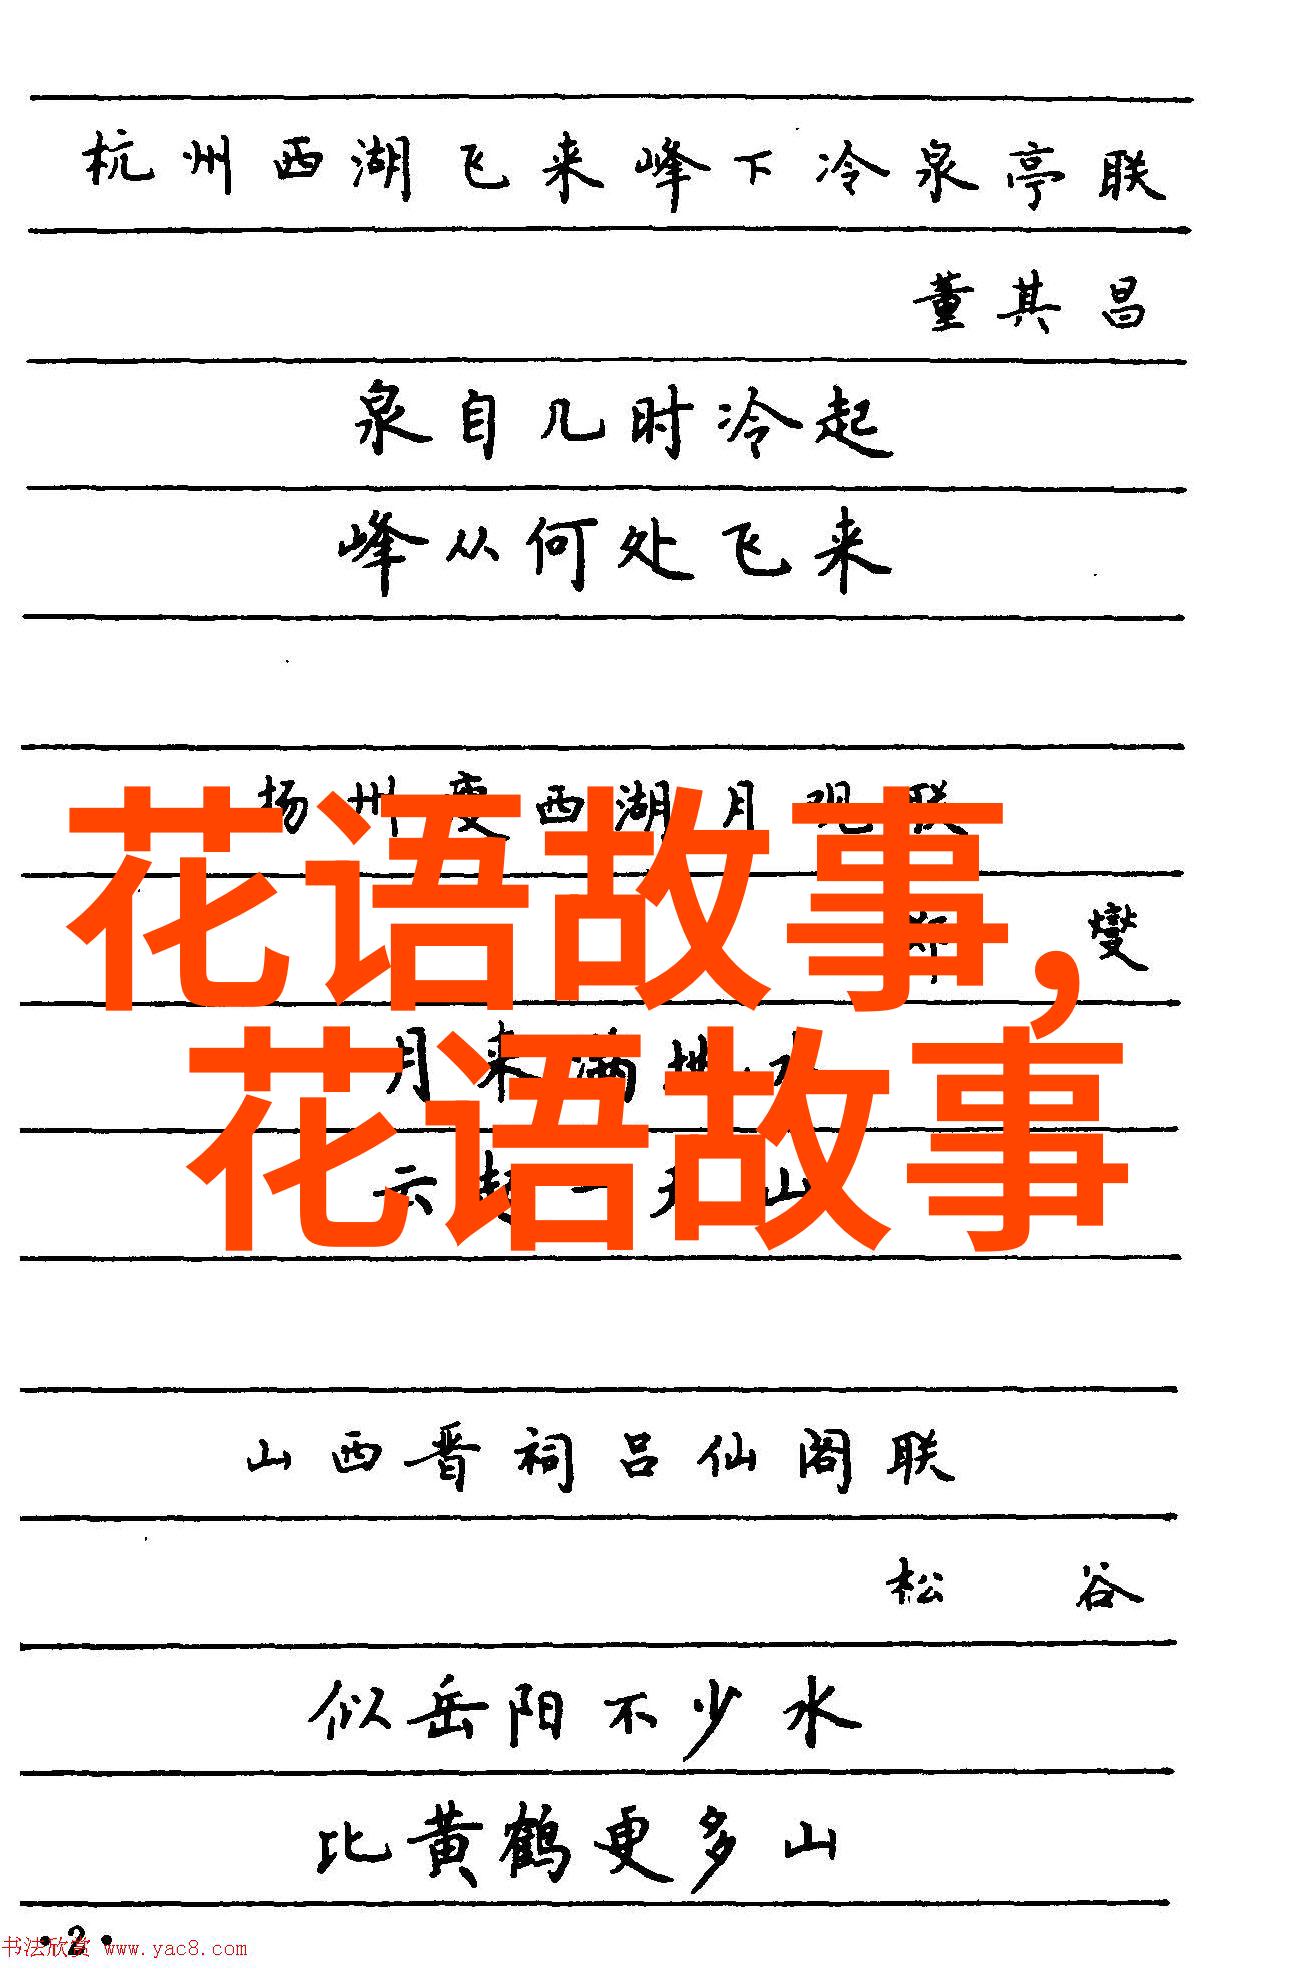 杭州西湖飞来峰下冷泉亭联
董其昌
泉自几时冷起
峰从何处飞来
扬州瘦西湖月观联
燮
花语故事,
月来满地水
花语故事
云起一天山
山西晋祠吕仙阁联
松谷
似岳阳不少水
比黄鹤更多山
·2·
书法欣赏 www.yac8.com